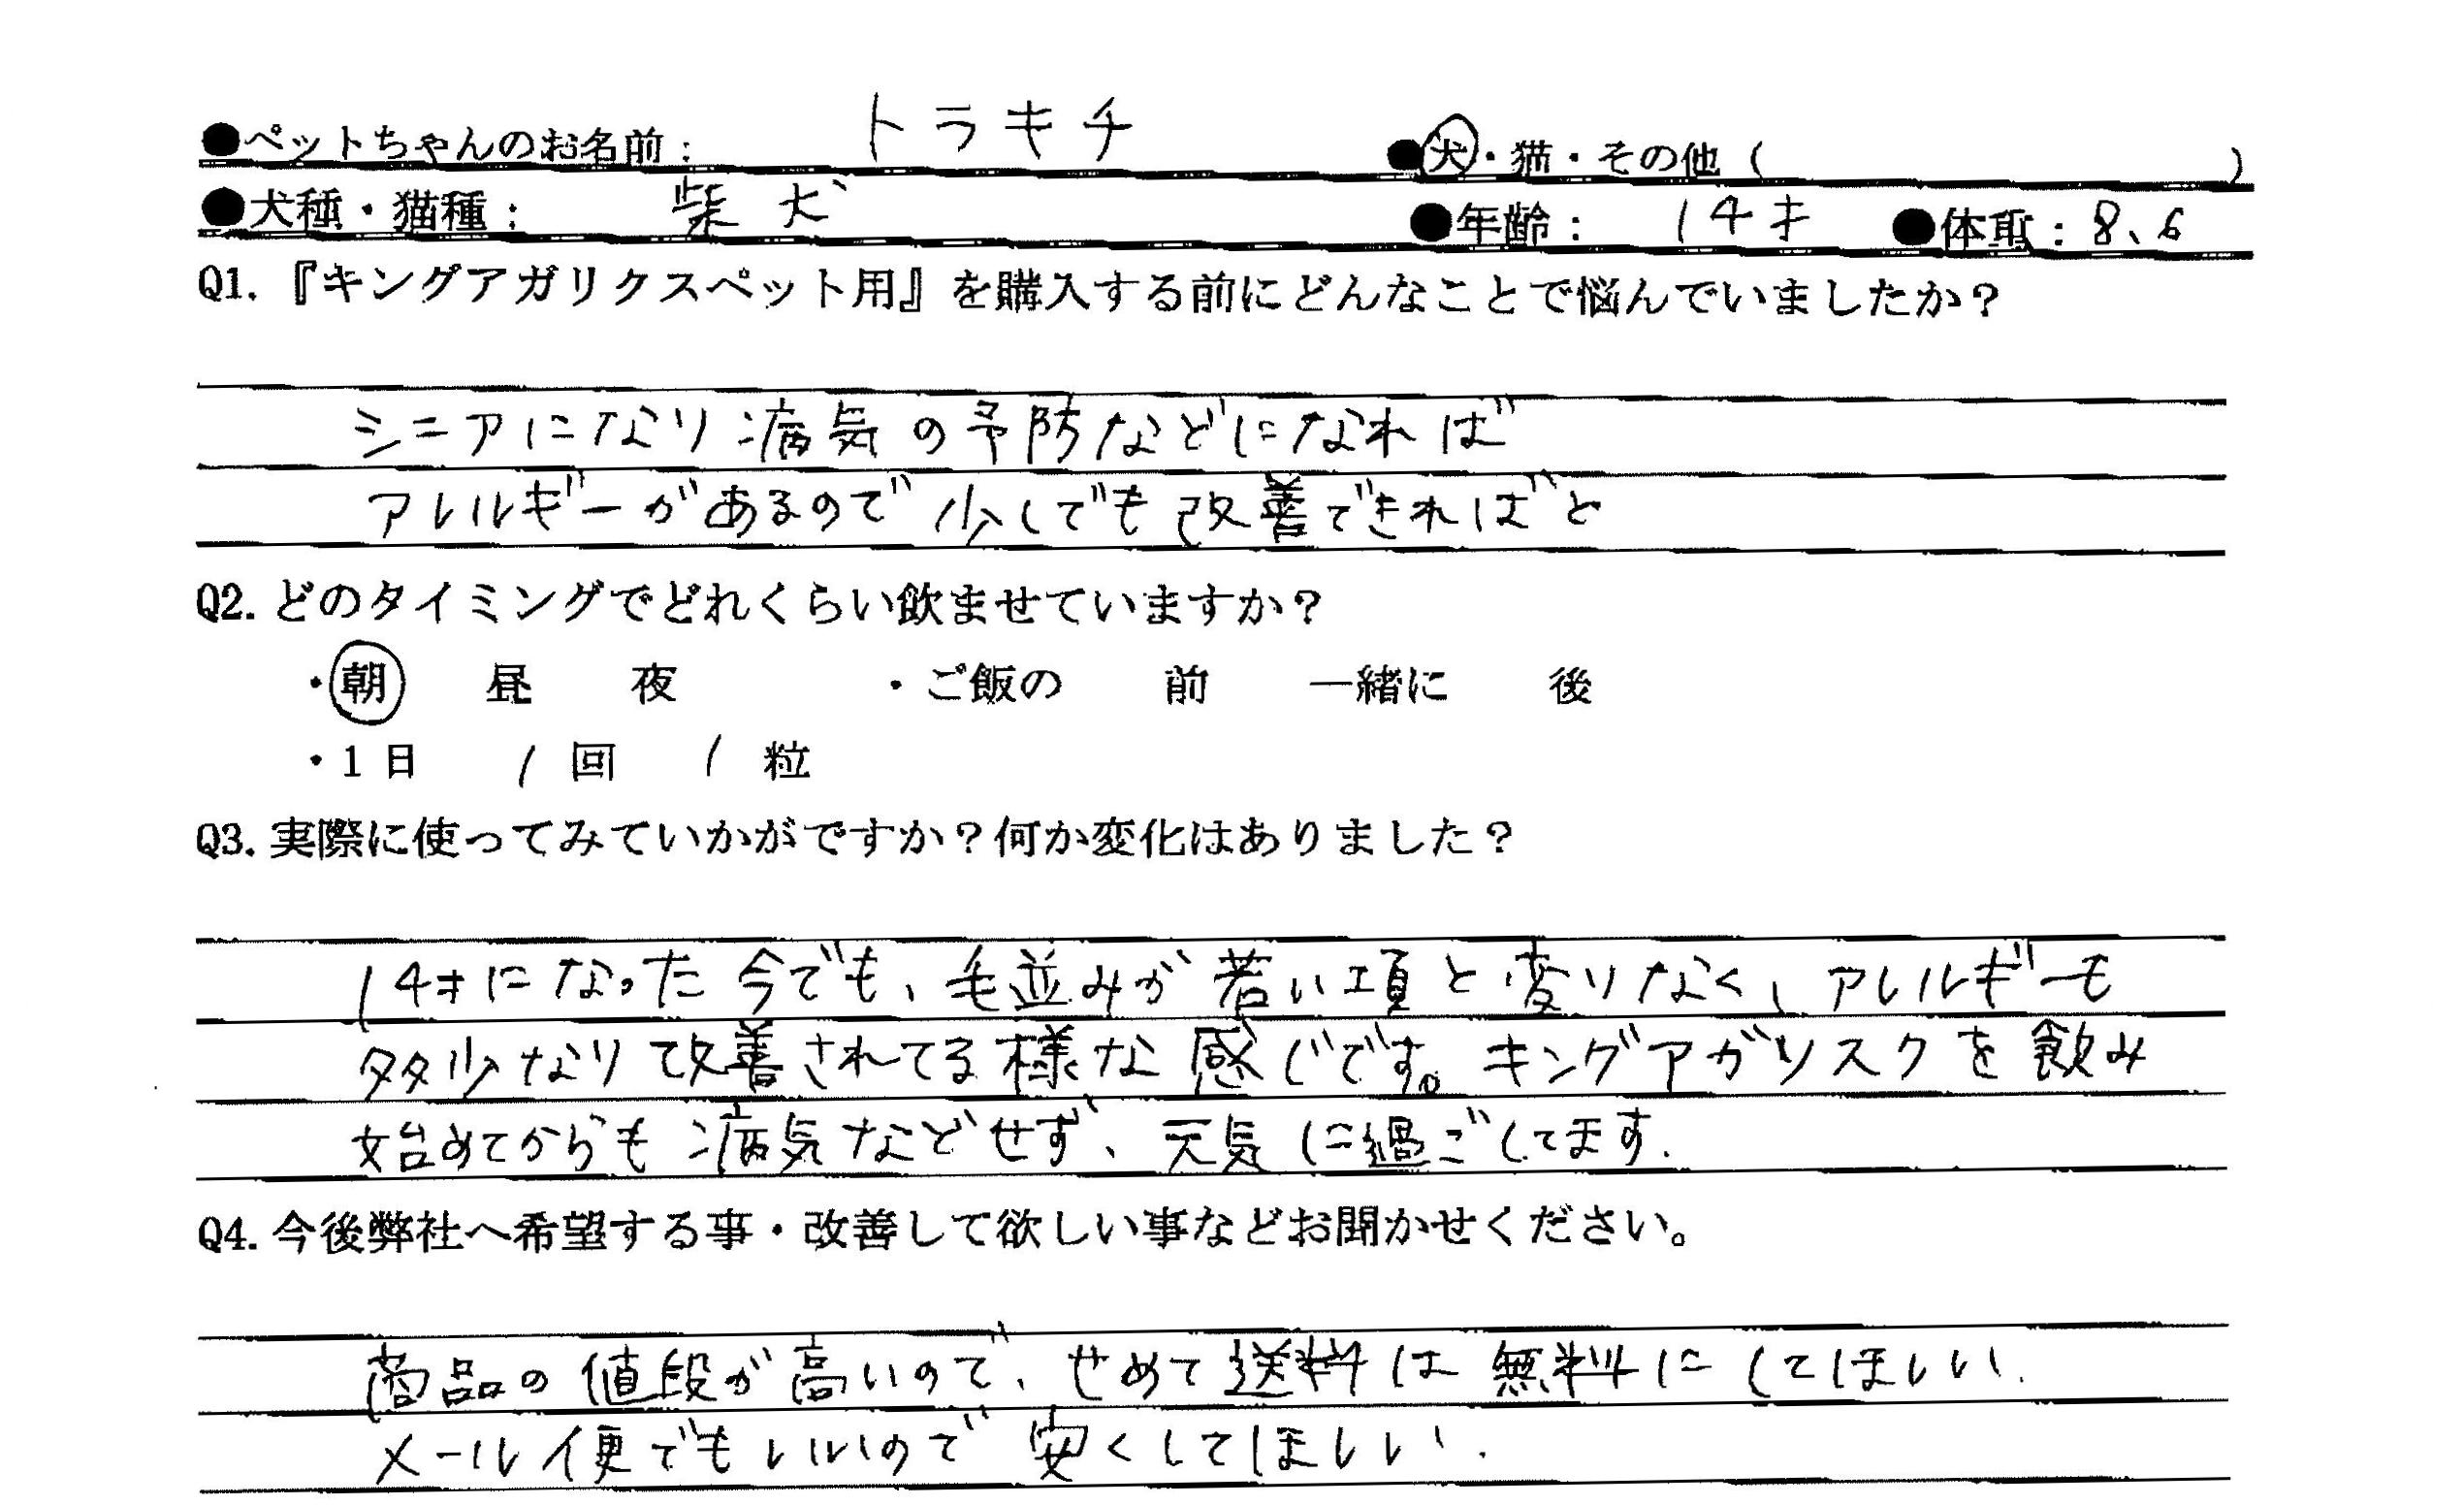 ●ペットちゃんのお名前: トラキチ ●犬・猫・その他( )
●犬種・猫種: 柴犬 ●年齢: 14才 ●体重: 8、6
Q1.『キングアガリクスペット用』を購入する前にどんなことで悩んでいましたか?
シニアになり病気の予防などになれば
アレルギーがあるので少しでも改善できればと
Q2.どのタイミングでどれくらい飲ませていますか?
・朝 昼 夜 ・ご飯の 前 一緒に 後
・1日 1回 1粒
Q3.実際に使ってみていかがですか?何か変化はありました?
14才になった今でも、毛並みが若い頃と変りなく、アレルギーも
多少なり改善されてる様な感じです。キングアガリスクを飲み
始めてからも病気などせず、元気に過ごしてます.
Q4.今後弊社へ希望する事・改善して欲しい事などお聞かせください。
商品の値段が高いので、せめて送料は無料にしてほしい.
メール便でもいいので安くしてほしい.